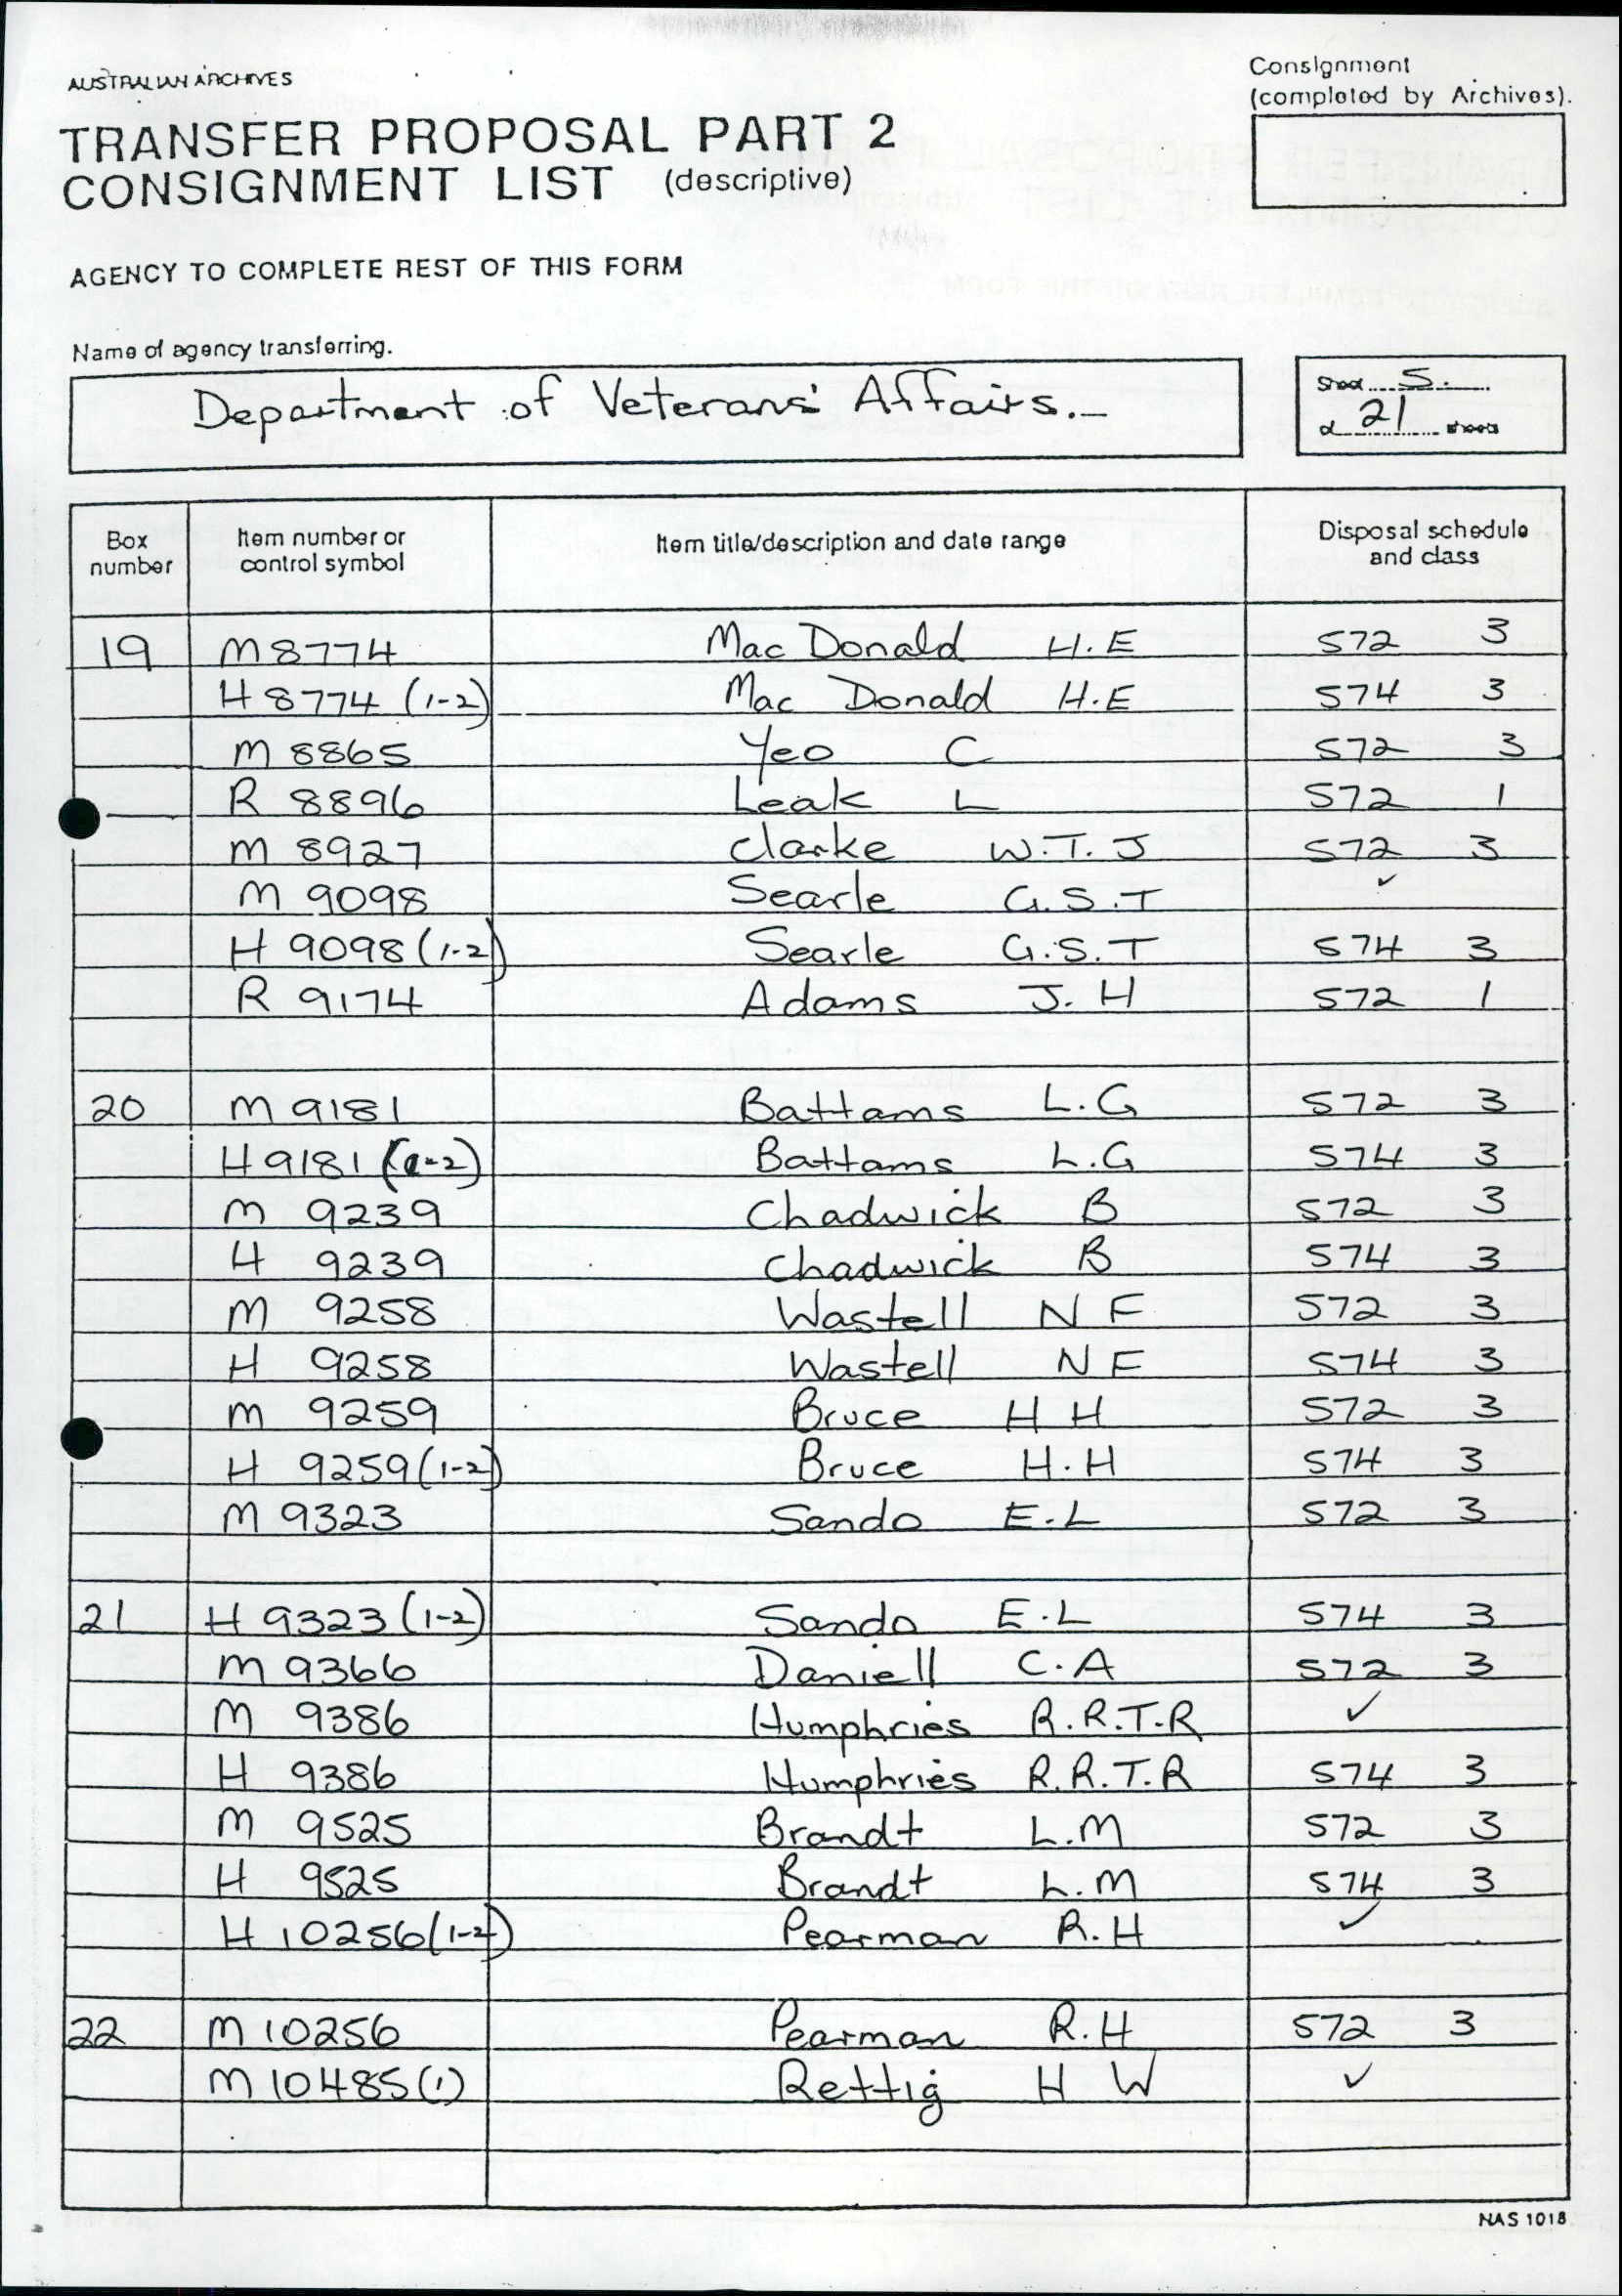 AUSTRALIAN ARCHIVES
Consignment
(completed by Archives).
TRANSFER PROPOSAL PART 2
CONSIGNMENT LIST (descriptive)
AGENCY TO COMPLETE REST OF THIS FORM
Name of agency transferring.
Department of Veterans' Affairs.-
Sheet 5.
of 21 sheets
Box number | Item number or control symbol | Item title/description and date range | Disposal schedule and class
19 M8774 Mac Donald H.E 572 3
H 8774 (1-2) Mac Donald H.E 574 3
M 8865 Yeo C 572 3
R 8896 Leak L 572 1
M 8927 Clarke W.T.J 572 3
M 9098 Searle G.S.T ✓
H 9098 (1-2) Searle G.S.T 574 3
R 9174 Adams J.H 572 1
20 M 9181 Battams L.G 572 3
H 9181 (1-2) Battams L.G 574 3
M 9239 Chadwick B 572 3
H 9239 Chadwick B 574 3
M 9258 Wastell N F 572 3
H 9258 Wastell N F 574 3
M 9259 Bruce H H 572 3
H 9259 (1-2) Bruce H.H 574 3
M 9323 Sando E.L 572 3
21 H 9323 (1-2) Sando E.L 574 3
M 9366 Daniell C.A 572 3
M 9386 Humphries R.R.T.R ✓
H 9386 Humphries R.R.T.R 574 3
M 9525 Brandt L.M 572 3
H 9525 Brandt L.M 574 3
H 10256 (1-2) Pearman R.H ✓
22 M 10256 Pearman R.H 572 3
M 10485 (1) Rettig H W ✓
NAS 1018